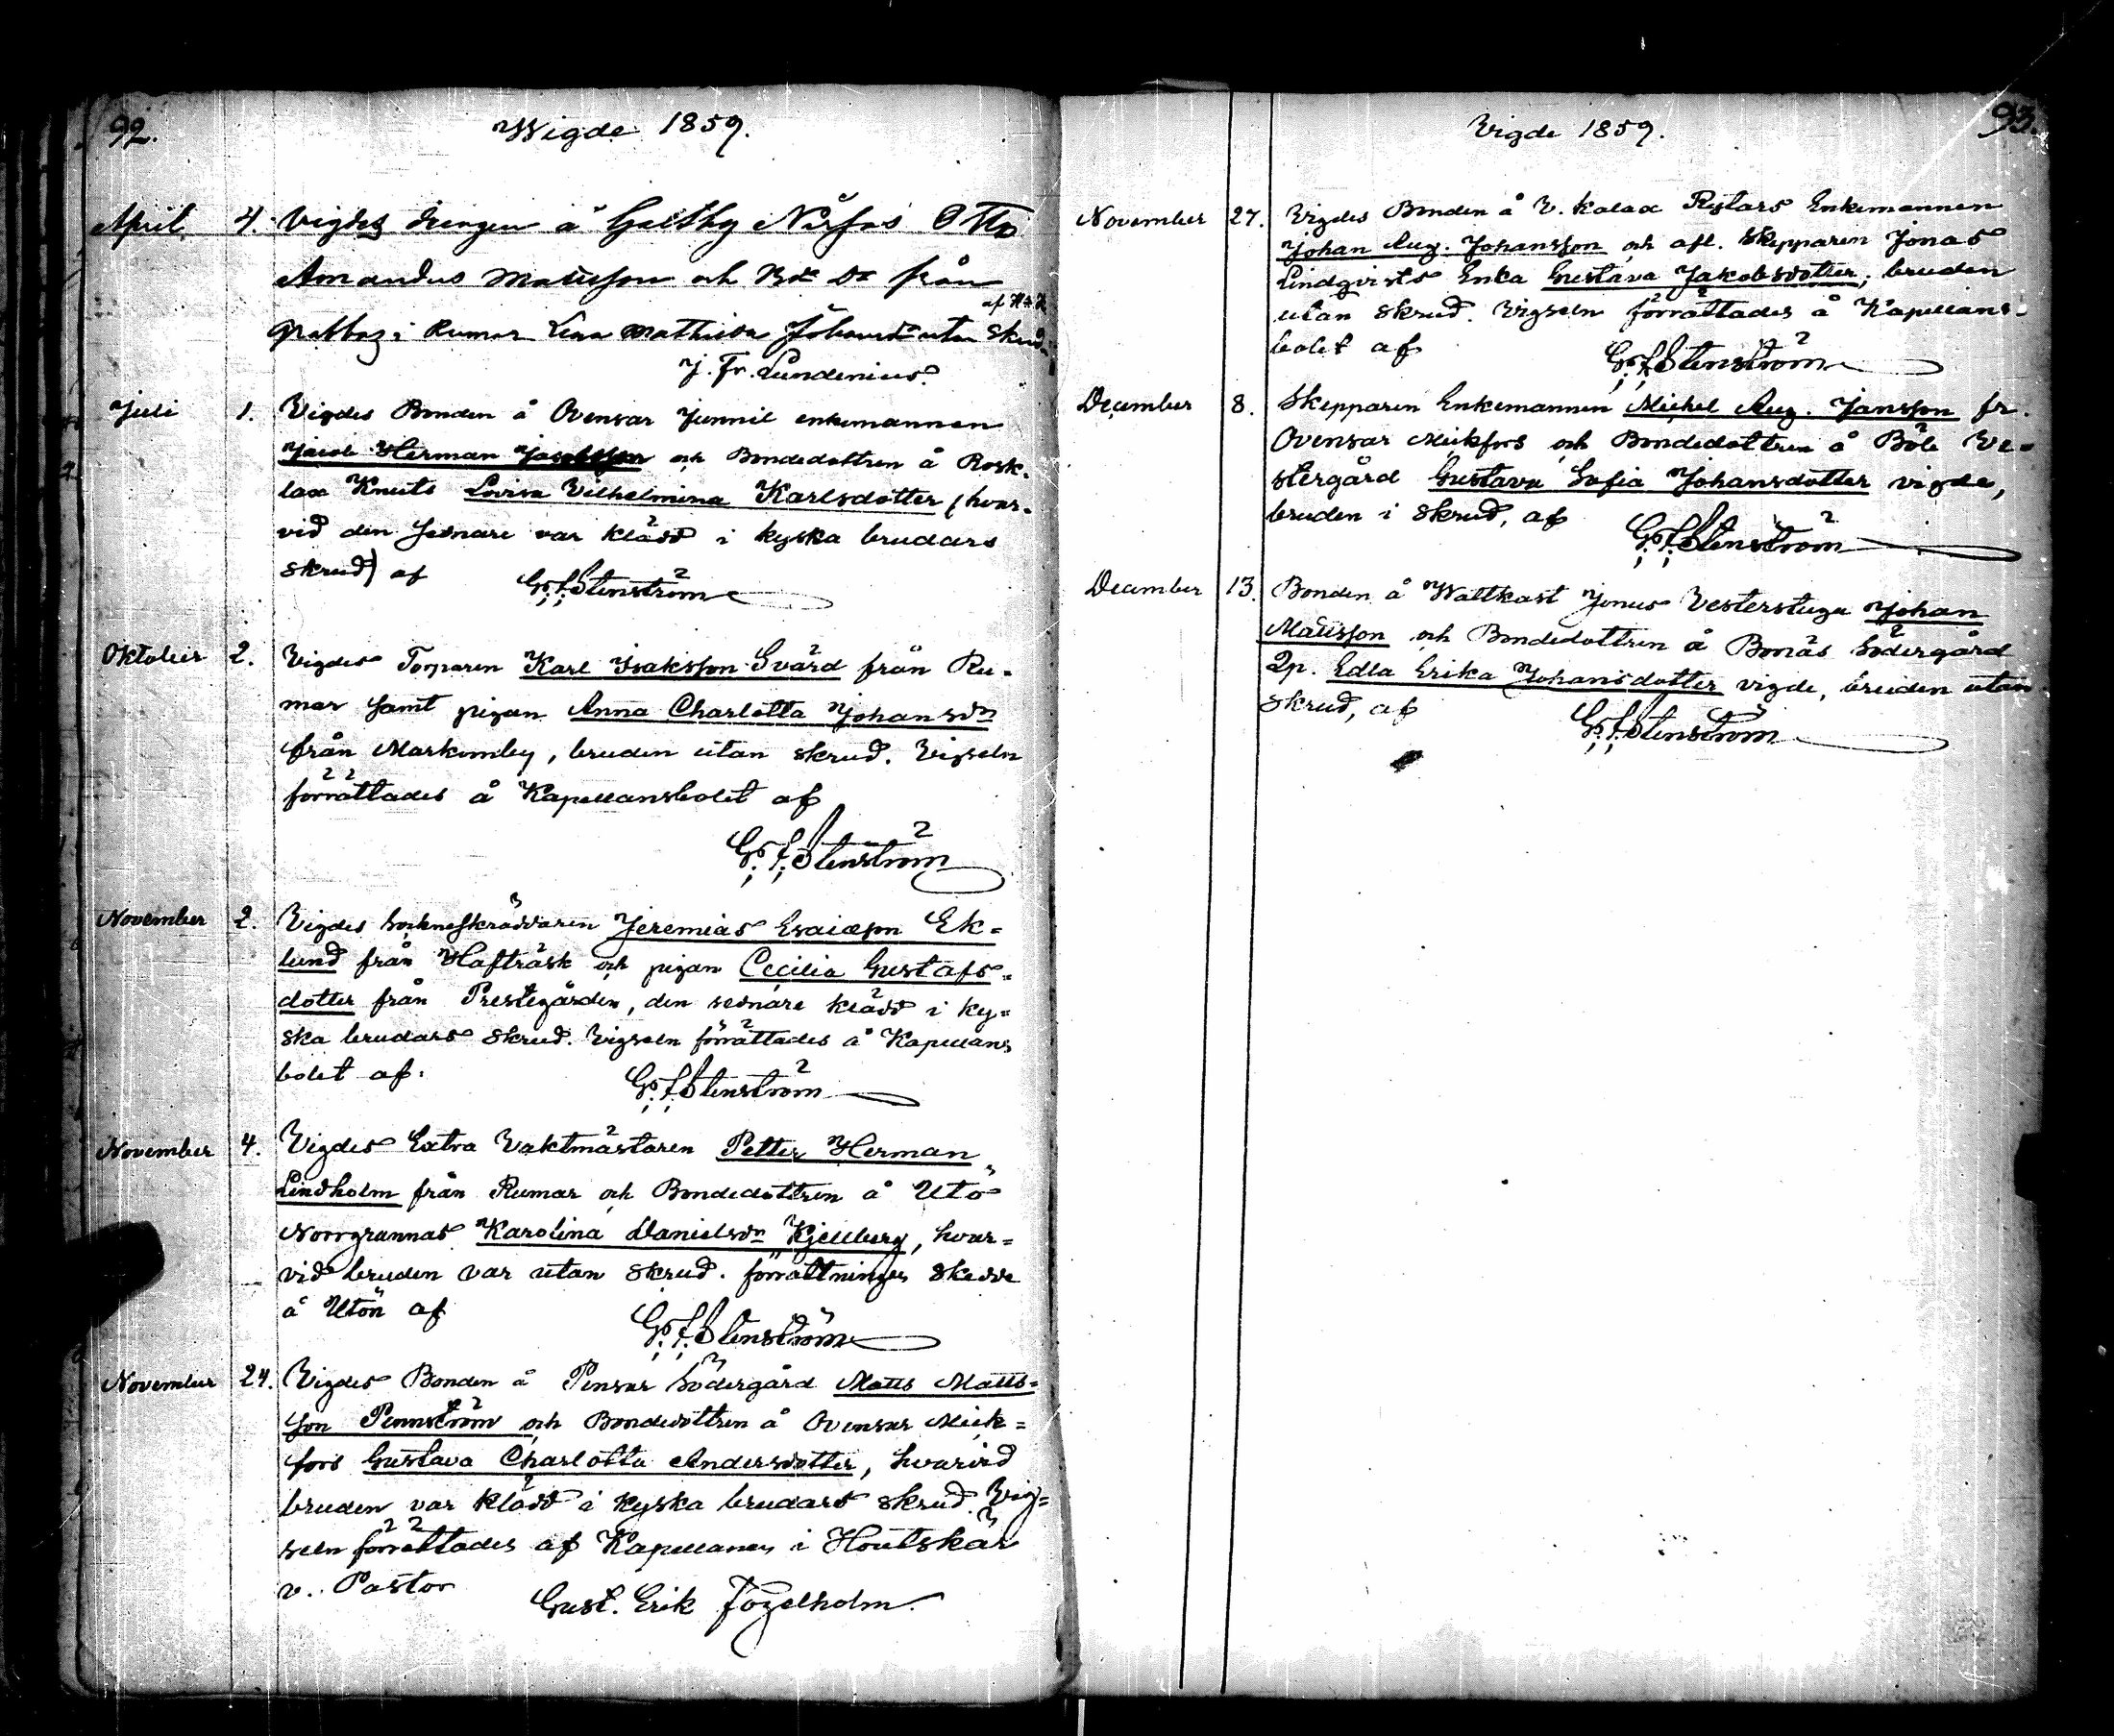 92.
Wigde 1859.
April 4. Vigdes drengen å Galtby Nissas Otto
Amandus Mattsson och Bd Dr från
af H. H.
Grabbas i Rumar Lena Mathilda Johansdr utan Skrud.
J. Fr. Lundenius.
Juli 1. Vigdes Bonden å Ovensar Junnil enkemannen
Jacob Herman Jacobsson och Bondedottren å Rosk-
lax Knuts Lovisa Vilhelmina Karlsdotter (hvar-
vid den sednare var klädd i kyska brudars
skrud) af G. F. Stenström
Oktober 2. Vigdes Torparen Karl Isaksson Svärd från Ru-
mar samt pigan Anna Charlotta Johansdr
från Markomby, bruden utan skrud. Vigseln
förrättades å Kapellansbolet af
G. F. Stenström
November 2. Vigdes Sockneskräddaren Jeremias Esaiæson Ek=
lund från Hafträsk och pigan Cecilia Gustafs=
dotter från Prestegården, den sednare klädd i ky=
ska brudars skrud. Vigseln förrättades å Kapellans
bolet af. G. F. Stenström
November 4. Vigdes Extra Vaktmästaren Petter Herman
Lindholm från Rumar och Bondedottren å Utö
Norrgrannas Karolina Danielsdr Kjellberg, hvar=
vid bruden var utan skrud. förrättningen skedde
å Utön af G. F. Stenström
November 24. Vigdes Bonden å Pensar Södergård Matts Matts=
son Pennström och Bondedottren å Ovensar Mick=
fors Gustava Charlotta Andersdotter, hvarvid
bruden var klädd i kyska brudars skrud. Vig=
seln förrättades af Kapellanen i Houtskär
v. Pastor Gust. Erik Fogelholm.
93.
Vigde 1859.
November 27. Vigdes Bonden å V. Kalax Rystars Enkemannen
Johan Aug. Johansson och afl. Skepparen Jonas
Lindqvists Enka Gustava Jakobsdotter; bruden
utan skrud. Vigseln förrättades å Kapellans-
bolet af G. F. Stenström
December 8. Skepparen Enkemannen Michel Aug. Jansson fr.
Ovensar Mickfors och Bondedottren å Böle Ve=
stergård Gustava Sofia Johansdotter vigde,
bruden i skrud, af G. F. Stenström
December 13. Bonden å Wattkast Jonus Vesterstuga Johan
Mattsson och Bondedottren å Bonäs Södergård
Qp. Edla Erika Johansdotter vigde, bruden utan
skrud, af G. F. Stenström